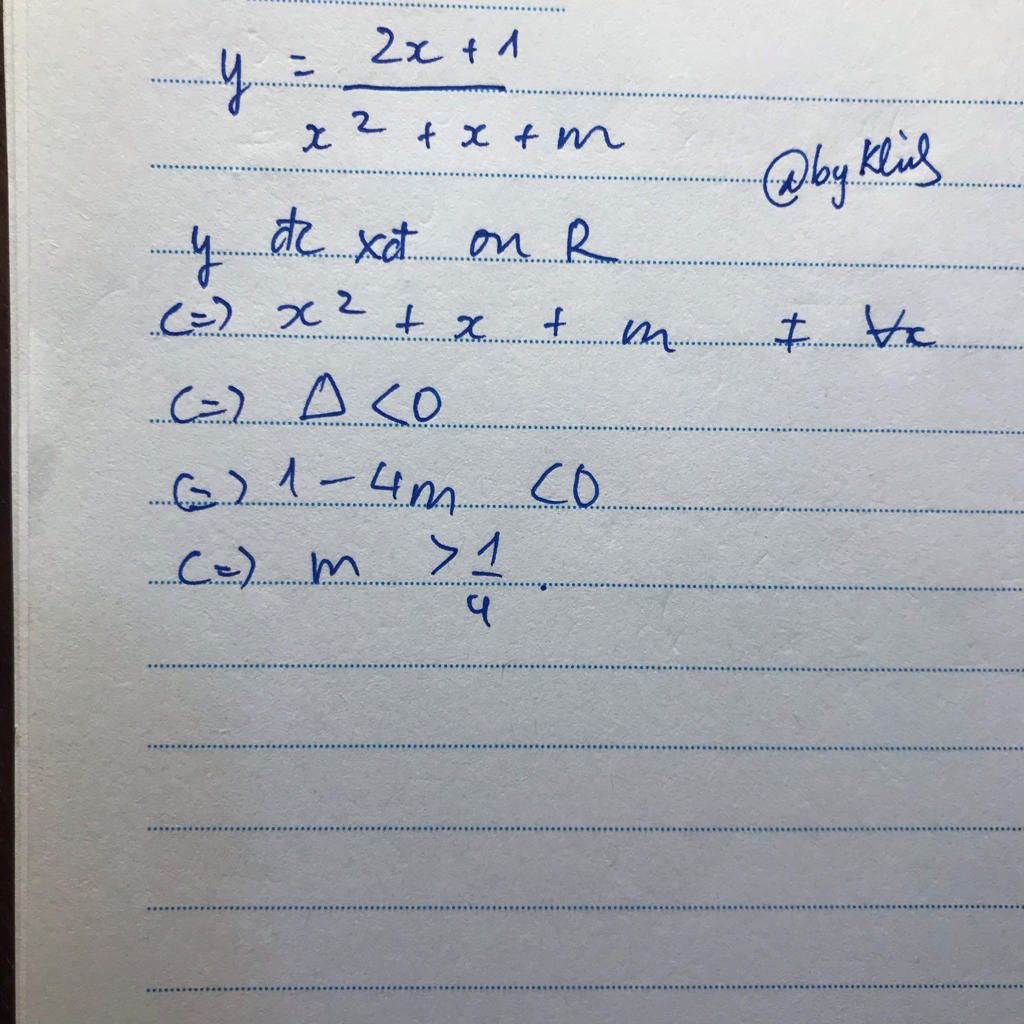 y = \frac{2x + 1}{x^2 + x + m}
@by
y đc xđ on R
(=) x^2 + x + m ≠ ∀x
(=) Δ <0
(=) 1 - 4m <0
(=) m > \frac{1}{4} .